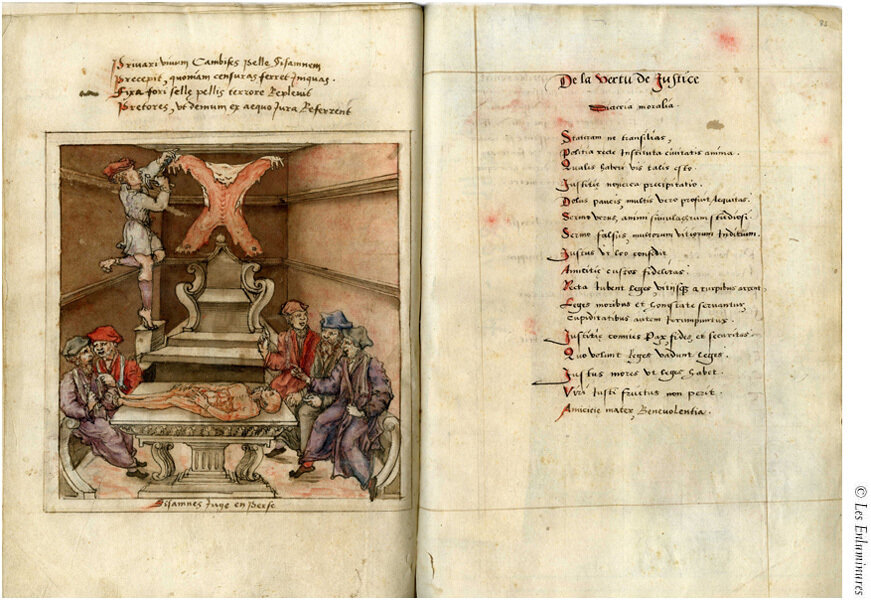 Privari vivum Cambises pelle Sisamnem
Precepit, quoniam censuras ferret Iniquas.
Fixa fori selle pellis terrore Replevit
Pretores, ut demum ex aequo Jura Referrent
Sisamnes Juge en Perse
82
De la vertu de Justice
moralia.
Stateram ne transilias,
Politia recte Instituta civitatis anima.
Qualis haberi vis talis esto.
Justitie noverca precipitatio.
Dolus paucis, multis vero prosunt Iequitas.
Sermo verus, animi simulachrum studiosi
Sermo falsus, multorum vitiorum Inditium.
Justus ut leo confidit
Amicitie custos fidelitas.
Recta Iubent leges, a turpibus arcent,
Leges moribus et honestate servantur,
Cupiditatibus autem Irrumpuntur.
Justitie comites Pax, fides, et securitas
Quo volunt Reges vadunt leges.
Justus mores ut leges habet.
Viri Justi fructus non perit.
Amicicie mater, Benevolentia.
© Les Enluminures